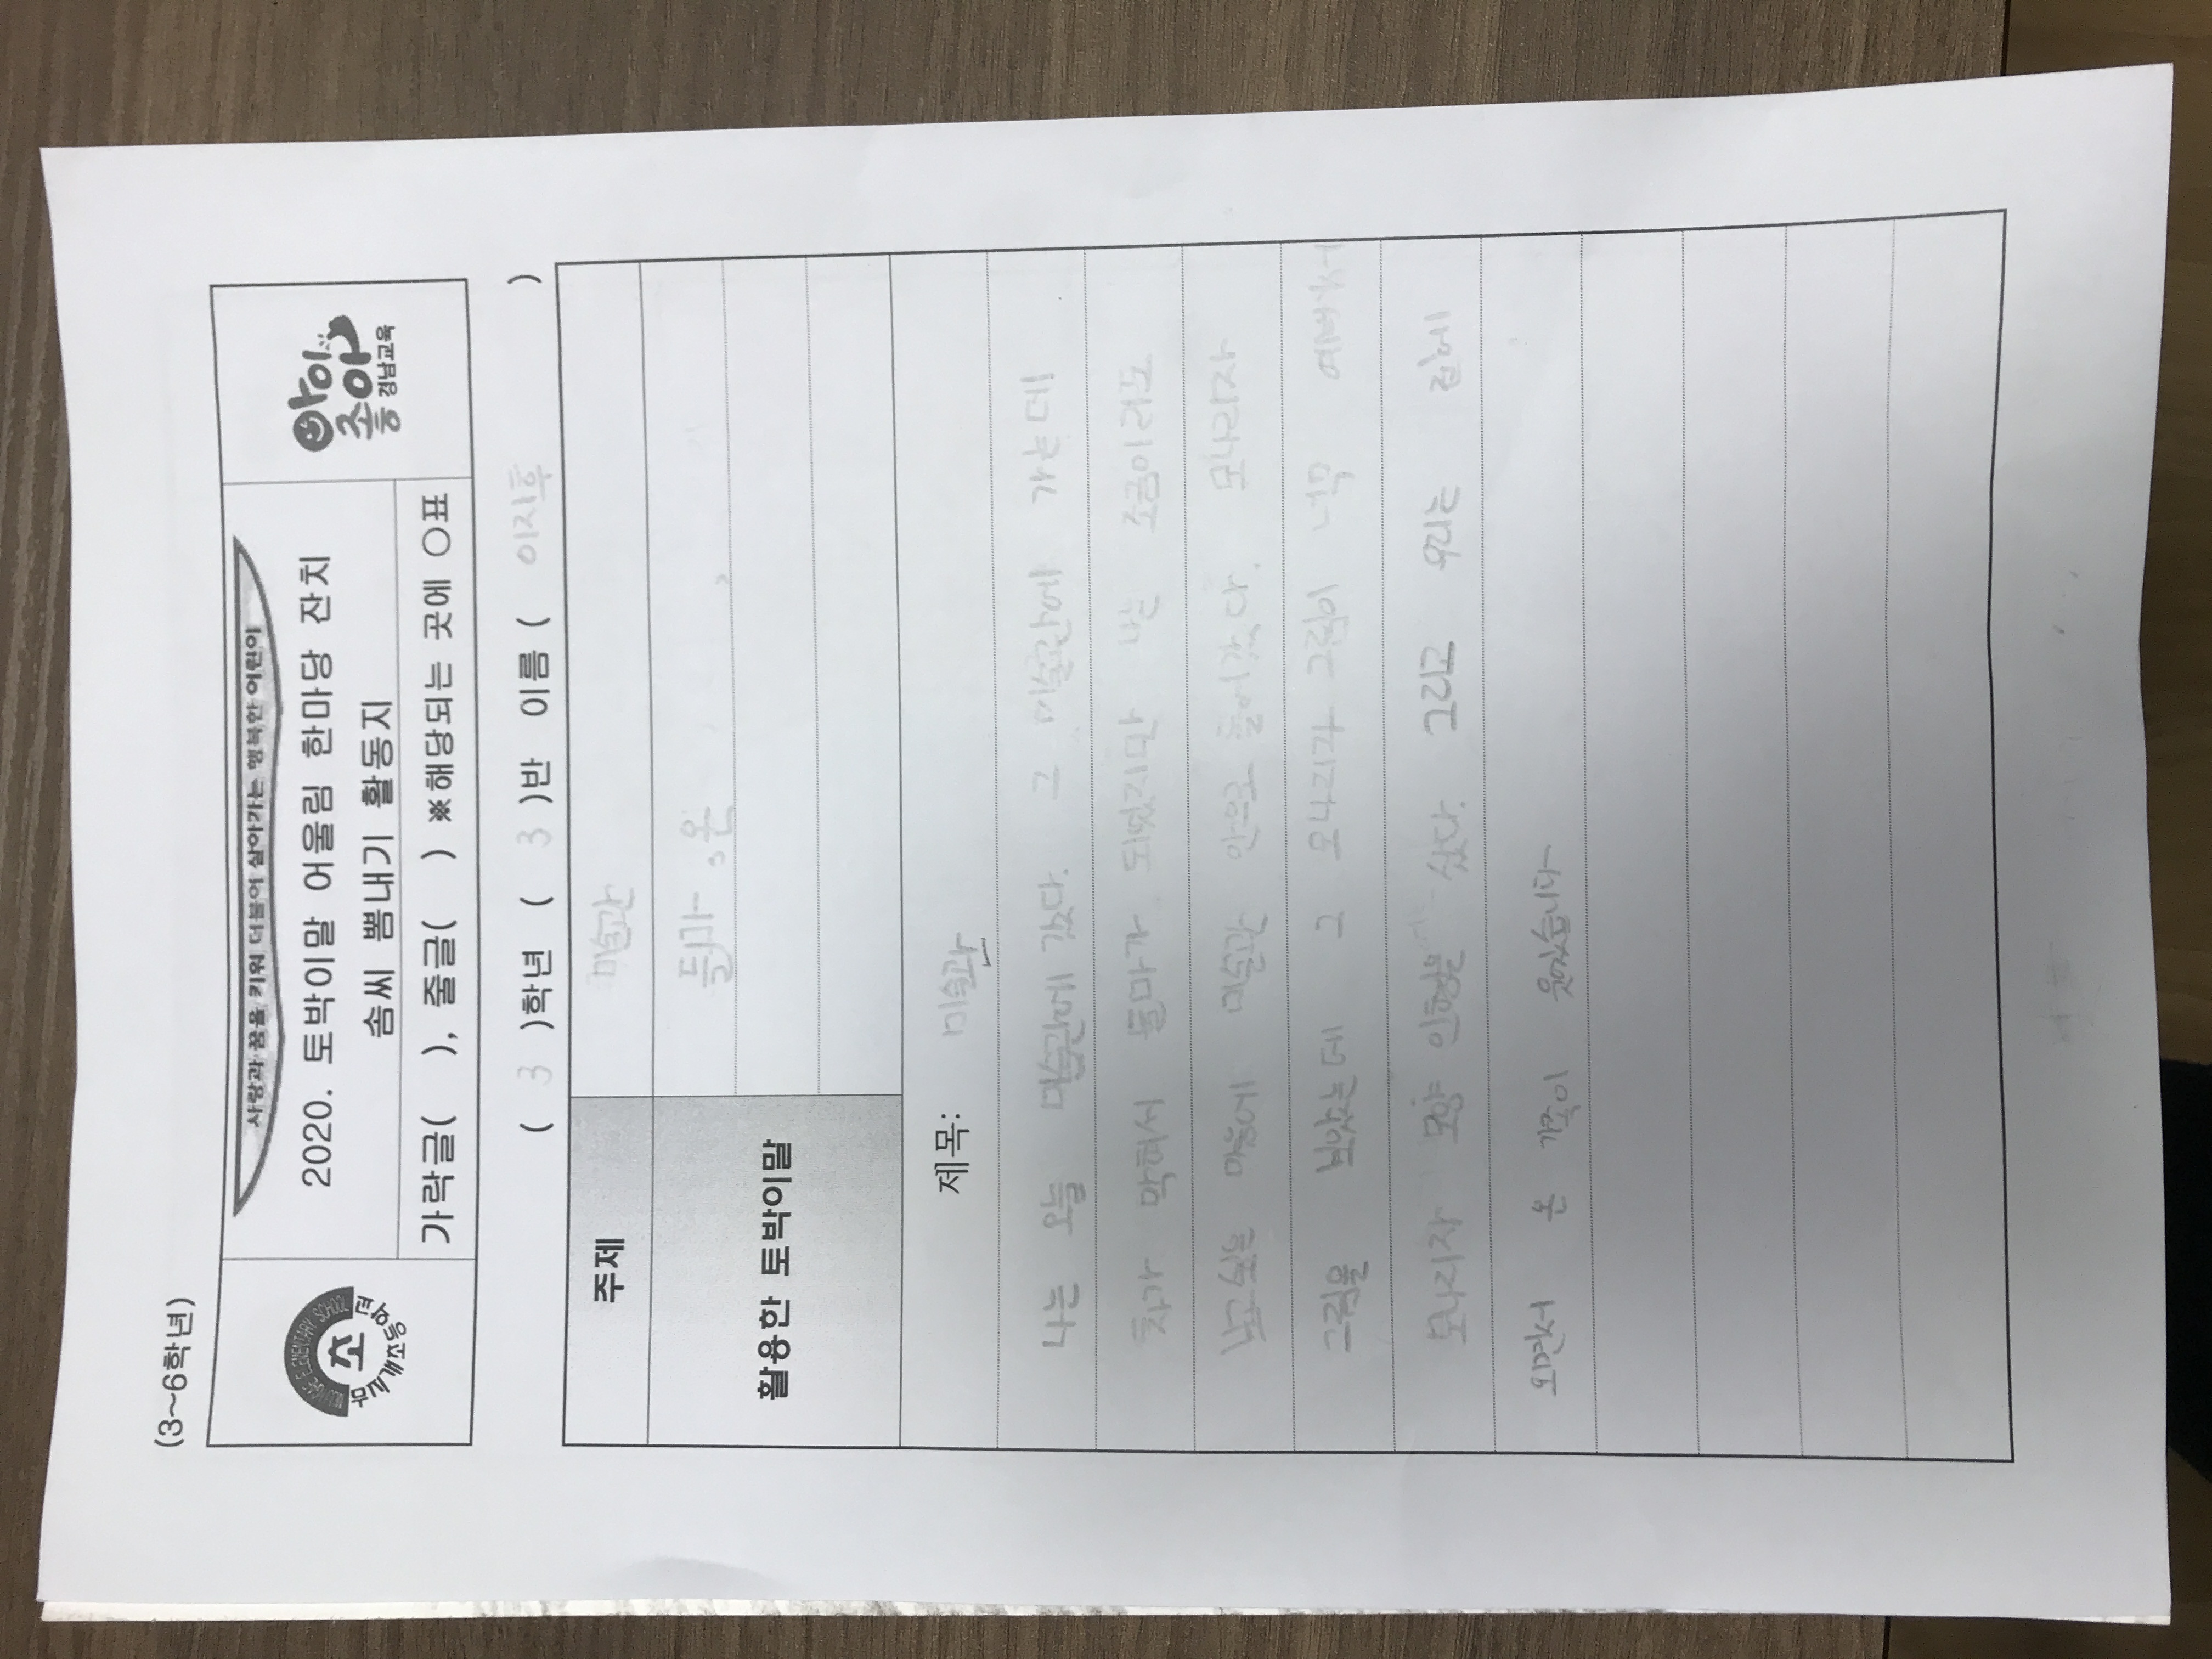 (3~6학년)
사랑과 꿈을 키워 더불어 살아가는 행복한 어린이
2020. 토박이말 어울림 한마당 잔치
솜씨 뽐내기 활동지
가락글( ), 줄글( ) ※해당되는 곳에 ○표
초
ELEMENTARY SCHOOL
무지개초등학교
아이좋아
경남교육
( 3 )학년 ( 3 )반 이름 ( 이지후 )
주제 미술관
활용한 토박이말 들마, 온
제목: 미술관
나는 오늘 미술관에 갔다. 그 미술관에 가는데
차가 막혀서 들마가 되었지만 나는 조금이라도
보고싶은 마음에 미술관 안으로 들어갔다. 모나리자
그림을 보았는데 그 모나리자 그림이 너무 예뻐서
모나리자 모양 인형을 샀다. 그리고 우리는 집에
오면서 온 가족이 웃었습니다